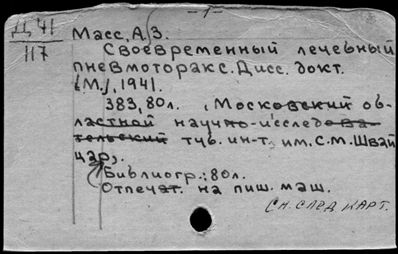 - 1 -
Д 41
117
Масс, А.З.
Своевременный лечебный
пневмоторакс. Дисс. докт.
[М.], 1941.
383, 80л. (Московский об-
ластной научно-исследова-
тельский туб. ин-т им. С.М. Швай
цар).
Библиогр.: 80л.
Отпечат. на пиш. маш.
См. след карт.